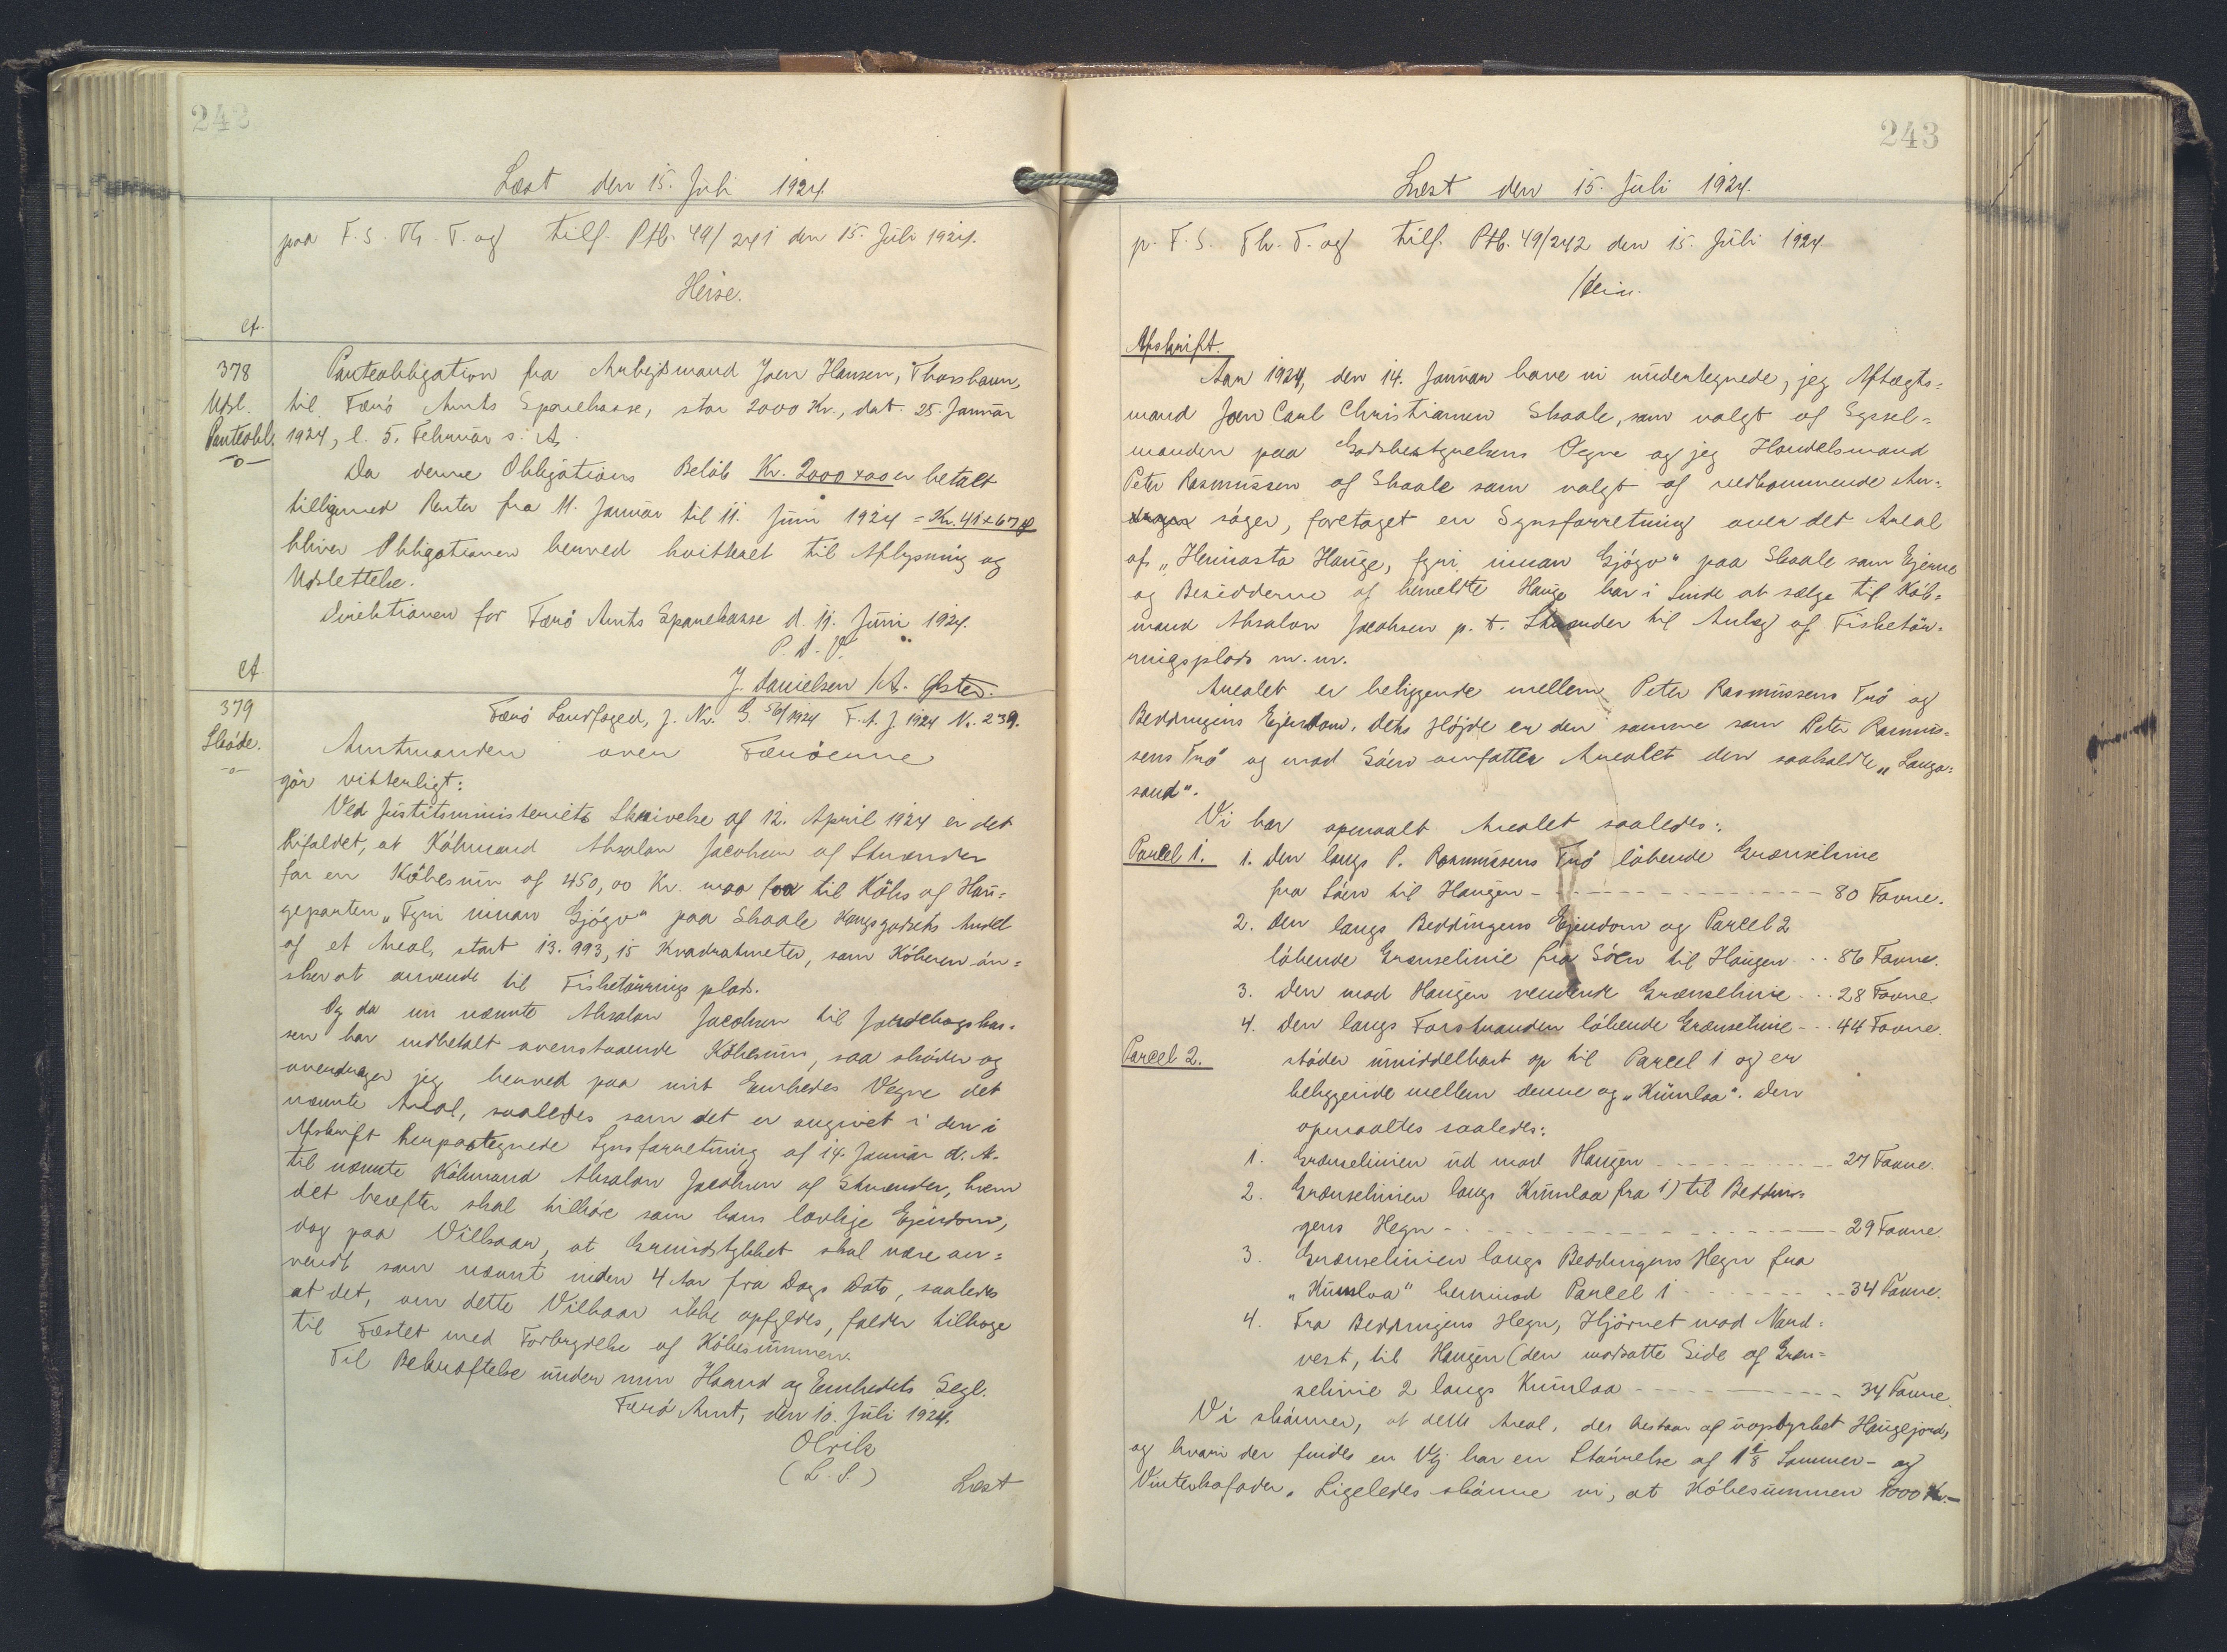 242
Læst den 15. Juli 1924
paa F. S. Th. T. og tilf. Ptb. 49/241 den 15. Juli 1924.
Heise.
A.
378
Udsl.
Panteobl.
-o-
Panteobligation fra Arbejdsmand Joen Hansen, Thorshavn,
til Færö Amts Sparekasse, stor 2000 Kr., dat. 25. Januar
1924, l. 5. Februar s. A.
Da denne Obligations Belöb Kr. 2000 x 00 er betalt
tilligemed Renter fra 11. Januar til 11. Juni 1924 = Kr. 41 x 67 Ø
bliver Obligationen herved kvitteret til Aflysning og
Udslettelse.
Direktionen for Færö Amts Sparekasse d. 11. Juni 1924.
P. D. V.
J. Danielsen / A. Østerø.
A.
379
Sköde.
-o-
Færö Landfoged, J. Nr. G. 56/1924 F. A. J. 1924 Nr. 239.
Amtmanden over Færöerne
gör vitterligt:
Ved Justitsministeriets Skrivelse af 12. April 1924 er det
bifaldet, at Köbmand Absalon Jacobsen af Strænder
for en Köbesum af 450,00 Kr. maa faa til Köbs af Hau=
geparten „Fyri innan Gjógv" paa Skaale Kongsgodsets Andel
af et Areal, stort 13.993,15 Kvadratmeter, som Köberen ön=
sker at anvende til Fisketörringsplads.
Og da nu nævnte Absalon Jacobsen til Jordebogskas=
sen har indbetalt ovenstaaende Köbesum, saa sköder og
overdrager jeg herved paa mit Embedes Vegne det
nævnte Areal, saaledes som det er angivet i den i
Afskrift herpaategnede Synsforretning af 14. Januar d. A.
til nævnte Köbmand Absalon Jacobsen af Strænder, hvem
det herefter skal tilhöre som hans lovlige Ejendom,
dog paa Vilkaar, at Grundstykket skal være an=
vendt som nævnt inden 4 Aar fra Dags Dato, saaledes
at det, om dette Vilkaar ikke opfyldes, falder tilbage
til Fæstet med Fortrydelse af Köbesummen.
Til Bekræftelse under min Haand og Embedets Segl.
Færö Amt, den 10. Juli 1924.
Olrik
(L. S.)
Læst
243
Læst den 15. Juli 1924.
p. F. S. Th. T. og tilf. Ptb. 49/242 den 15. Juli 1924
Afskrift.
Aar 1924, den 14. Januar have vi undertegnede, jeg Aftægts=
mand Joen Carl Christiansen Skaale, som valgt af Syssel=
manden paa Godsbestyrelsens Vegne og jeg Handelsmand
Peter Rasmussen af Skaale som valgt af vedkommende An=
söger, foretaget en Synsforretning over det Areal
af „Heimasta Hauge, fyri innan Gjógv" paa Skaale som Ejerne
og Besidderne af bemeldte Hauge har i Sinde at sælge til Köb=
mand Absalon Jacobsen p. t. Strænder til Anlæg af Fisketör=
ringsplads m. m.
Arealet er beliggende mellem Peter Rasmussens Trö og
Beddingens Ejendom. Dets Höjde er den samme som Peter Rasmus=
sens Trö og mod Söen omfatter Arealet den saakaldte „Langa=
sand".
Vi har opmaalt Arealet saaledes:
Parcel 1. 1. Den langs P. Rasmussens Trö löbende Grænselinie
fra Söen til Haugen - - - 80 Favne.
2. Den langs Beddingens Ejendom og Parcel 2
löbende Grænselinie fra Söen til Haugen - - - 86 Favne.
3. Den mod Haugen vendende Grænselinie - - - 28 Favne
4. Den langs Forstranden löbende Grænselinie - - - 44 Favne.
Parcel 2. stöder umiddelbart op til Parcel 1 og er
beliggende mellem denne og „Kumlaa". Den
opmaaltes saaledes:
1. Grænselinien ud mod Haugen - - - 27 Favne.
2. Grænselinien langs Kumlaa fra 1) til Beddin=
gens Hegn - - - 29 Favne.
3. Grænselinien langs Beddingens Hegn fra
„Kumlaa" henimod Parcel 1 - - - 34 Favne.
4. Fra Beddingens Hegn, Hjörnet mod Nord=
vest, til Haugen (den modsatte Side af Græn=
selinie 2 langs Kumlaa - - - 34 Favne.
Vi skönner, at dette Areal, der bestaar af uopdyrket Haugejord,
og hvori der findes en Vej har en Störrelse af 1 1/8 Sommer- og
Vinterkofoder. Ligeledes skönne vi, at Köbesummen 1000 Kr.-